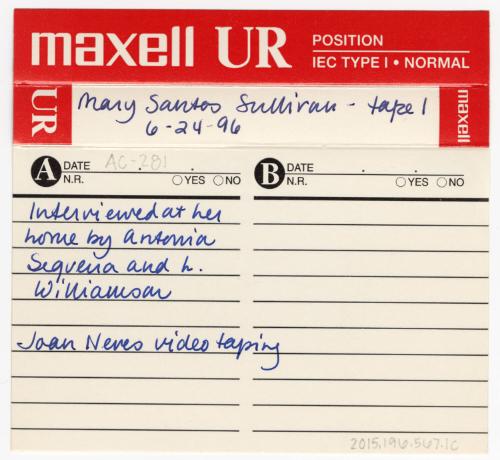 maxell UR POSITION
IEC TYPE I • NORMAL
UR Mary Santos Sullivan - tape 1 maxell
6-24-96
A DATE AC-281 . B DATE . .
N.R. ○YES ○NO N.R. ○YES ○NO
Interviewed at her
home by Antonia
Sequeria and L.
Williamson
Joan Neves video taping
2015.196.567.1c